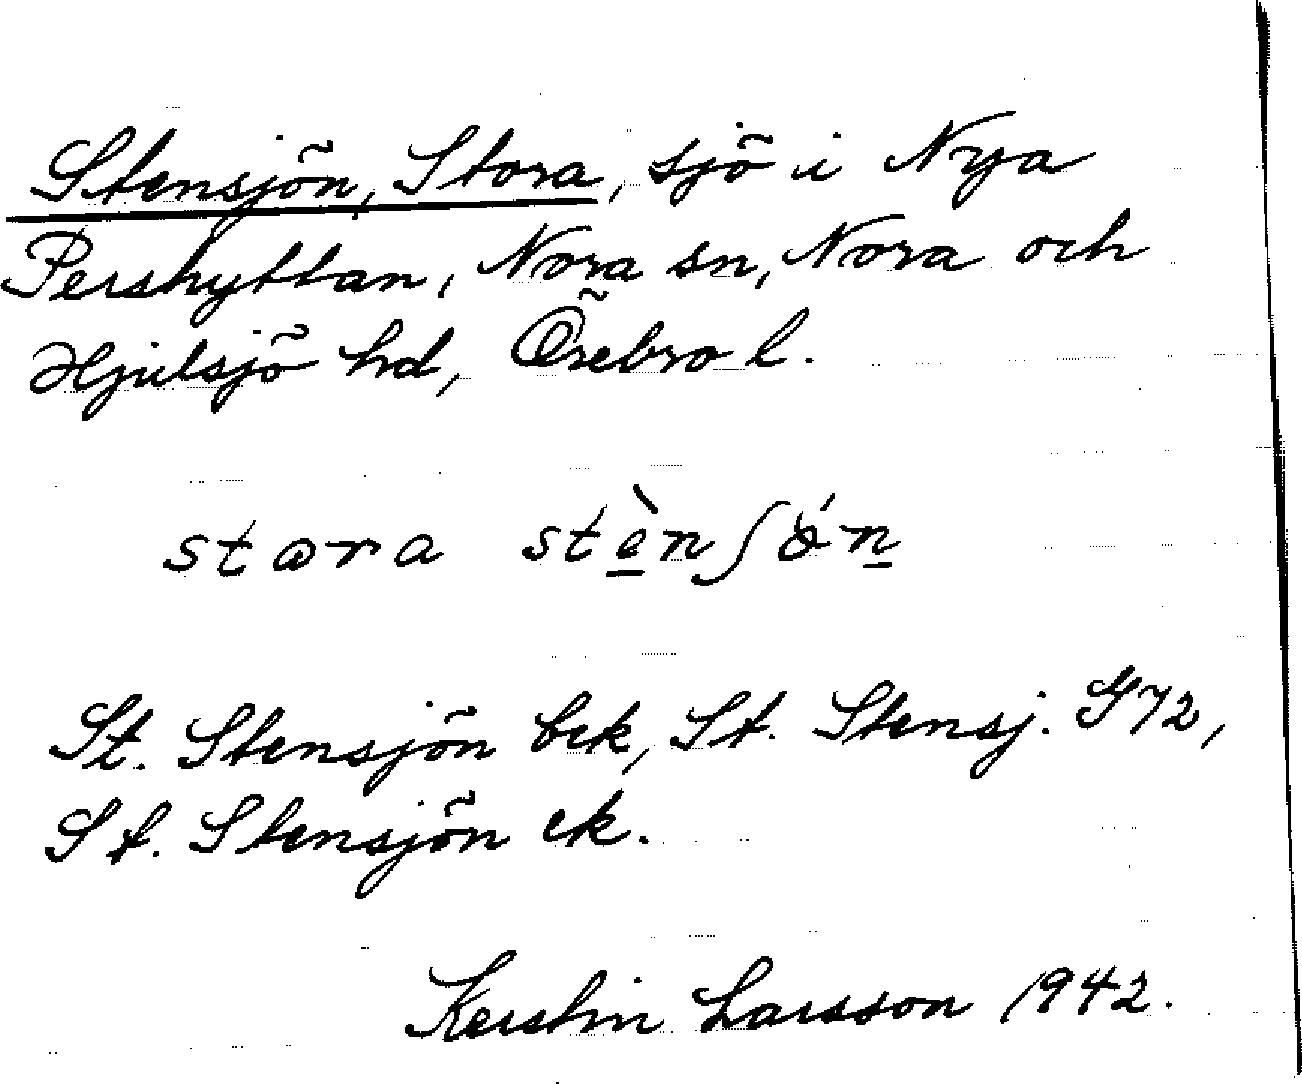 Stensjön, Stora, sjö i Nya
Pershyttan, Nora sn, Nora och
Hjulsjö hd, Örebro l.
stora stènʃǿn
St. Stensjön bek, St. Stensj. G72,
St. Stensjön ek.
Kerstin Larsson 1942.